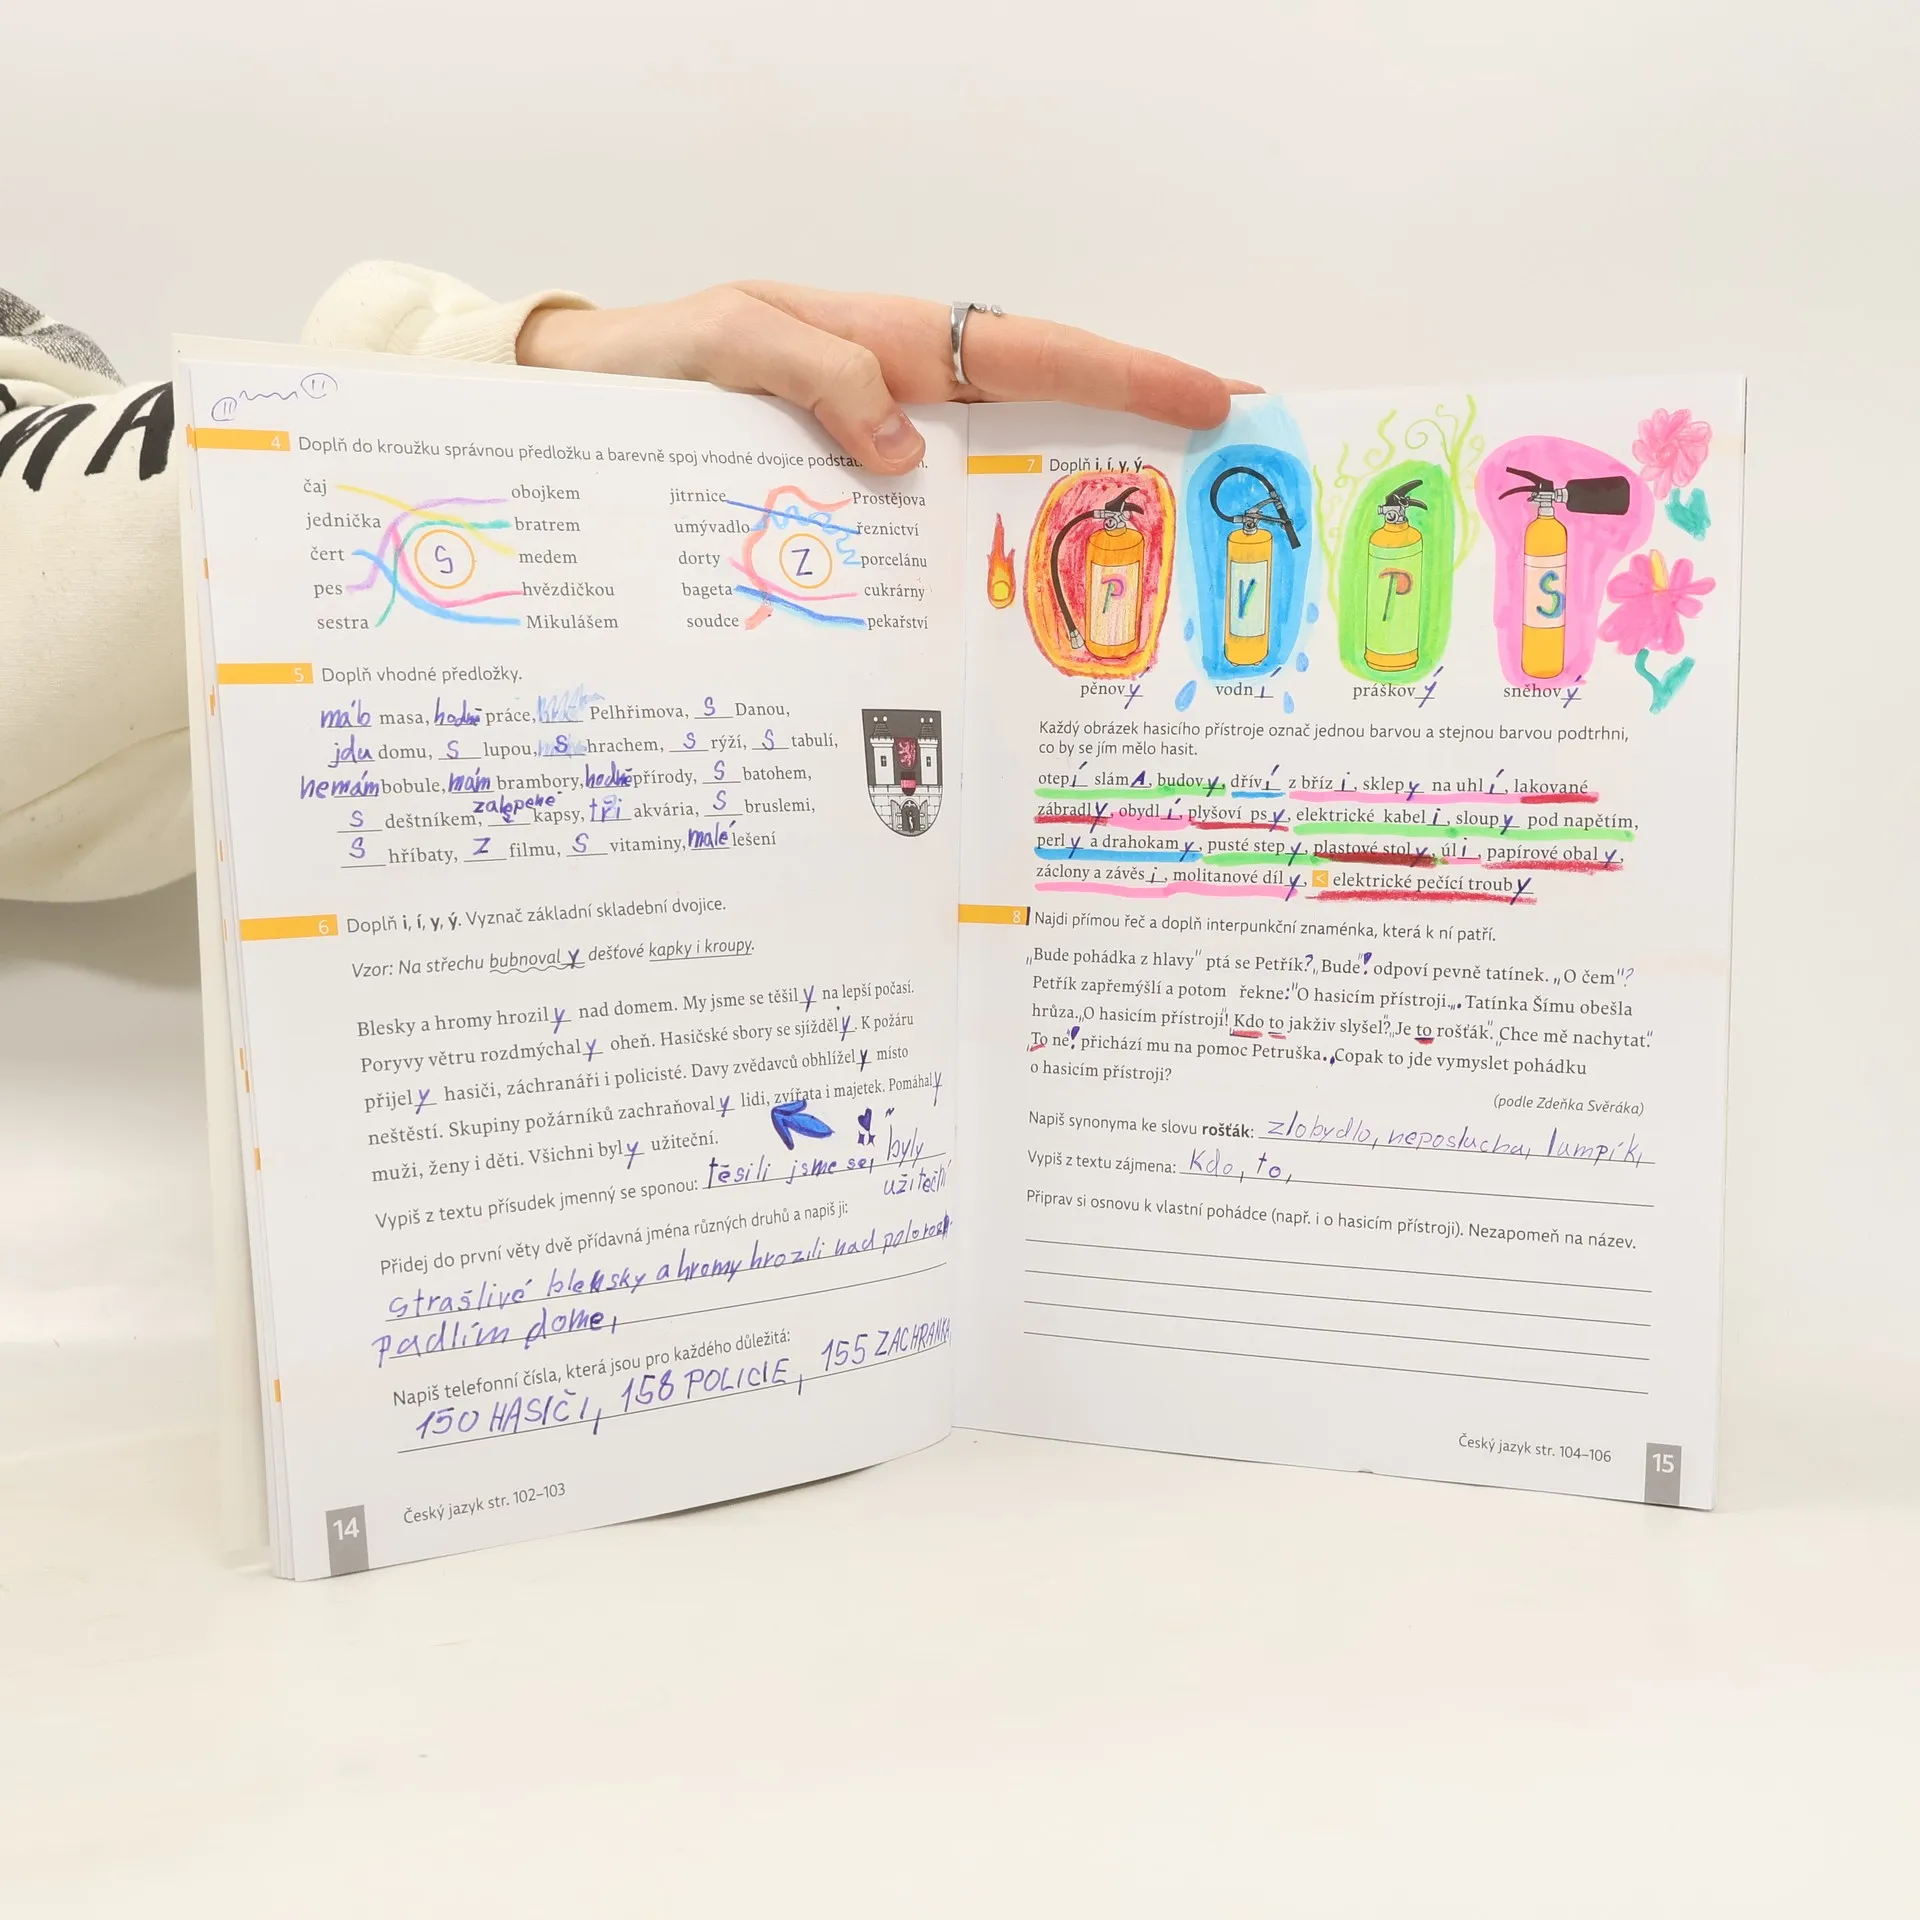 4 Doplň do kroužku správnou předložku a barevně spoj vhodné dvojice podstat.
čaj obojkem
jednička bratrem
čert S medem
pes hvězdičkou
sestra Mikulášem
jitrnice Prostějova
umývadlo řeznictví
dorty Z porcelánu
bageta cukrárny
soudce pekařství
5 Doplň vhodné předložky.
masa, hodně práce, Pelhřimova, S Danou,
jdu domu, S lupou, S hrachem, S rýží, S tabulí,
nemám bobule, mám brambory, hodně přírody, S batohem,
zalepené
S deštníkem, kapsy, tři akvária, S bruslemi,
S hříbaty, Z filmu, S vitaminy, malé lešení
6 Doplň i, í, y, ý. Vyznač základní skladební dvojice.
Vzor: Na střechu bubnoval y dešťové kapky i kroupy.
Blesky a hromy hrozil y nad domem. My jsme se těšil y na lepší počasí.
Poryvy větru rozdmýchal y oheň. Hasičské sbory se sjížděl y. K požáru
přijel y hasiči, záchranáři i policisté. Davy zvědavců obhlížel y místo
neštěstí. Skupiny požárníků zachraňoval y lidi, zvířata i majetek. Pomáhal y
muži, ženy i děti. Všichni byl y užiteční.
Vypiš z textu přísudek jmenný se sponou: těsili jsme se, byly
užiteční
Přidej do první věty dvě přídavná jména různých druhů a napiš ji:
strašlivé blesky a hromy hrozili nad
padlím dome,
Napiš telefonní čísla, která jsou pro každého důležitá:
150 HASIČI, 158 POLICIE, 155 ZACHRANKA
14 Český jazyk str. 102–103
7 Doplň i, í, y, ý.
P V P S
pěnov ý vodn í práškov ý sněhov ý
Každý obrázek hasicího přístroje označ jednou barvou a stejnou barvou podtrhni,
co by se jím mělo hasit.
otep í slám A, budov y, dřív í z bříz i, sklep y na uhl í, lakované
zábradl y, obydl í, plyšoví ps y, elektrické kabel i, sloup y pod napětím,
perl y a drahokam y, pusté step y, plastové stol y, úl i, papírové obal y,
záclony a závěs i, molitanové díl y, < elektrické pečící troub y
8 Najdi přímou řeč a doplň interpunkční znaménka, která k ní patří.
„Bude pohádka z hlavy" ptá se Petřík?„Bude"! odpoví pevně tatínek. „O čem"?
Petřík zapřemýšlí a potom řekne:"O hasicím přístroji„. Tatínka Šímu obešla
hrůza.„O hasicím přístroji"! Kdo to jakživ slyšel?„Je to rošťák".„Chce mě nachytat."
„To ne"! přichází mu na pomoc Petruška.„Copak to jde vymyslet pohádku
o hasicím přístroji?
(podle Zdeňka Svěráka)
Napiš synonyma ke slovu rošťák: zlobydlo, neposlucha, lumpík,
Vypiš z textu zájmena: Kdo, to,
Připrav si osnovu k vlastní pohádce (např. i o hasicím přístroji). Nezapomeň na název.
Český jazyk str. 104–106 15